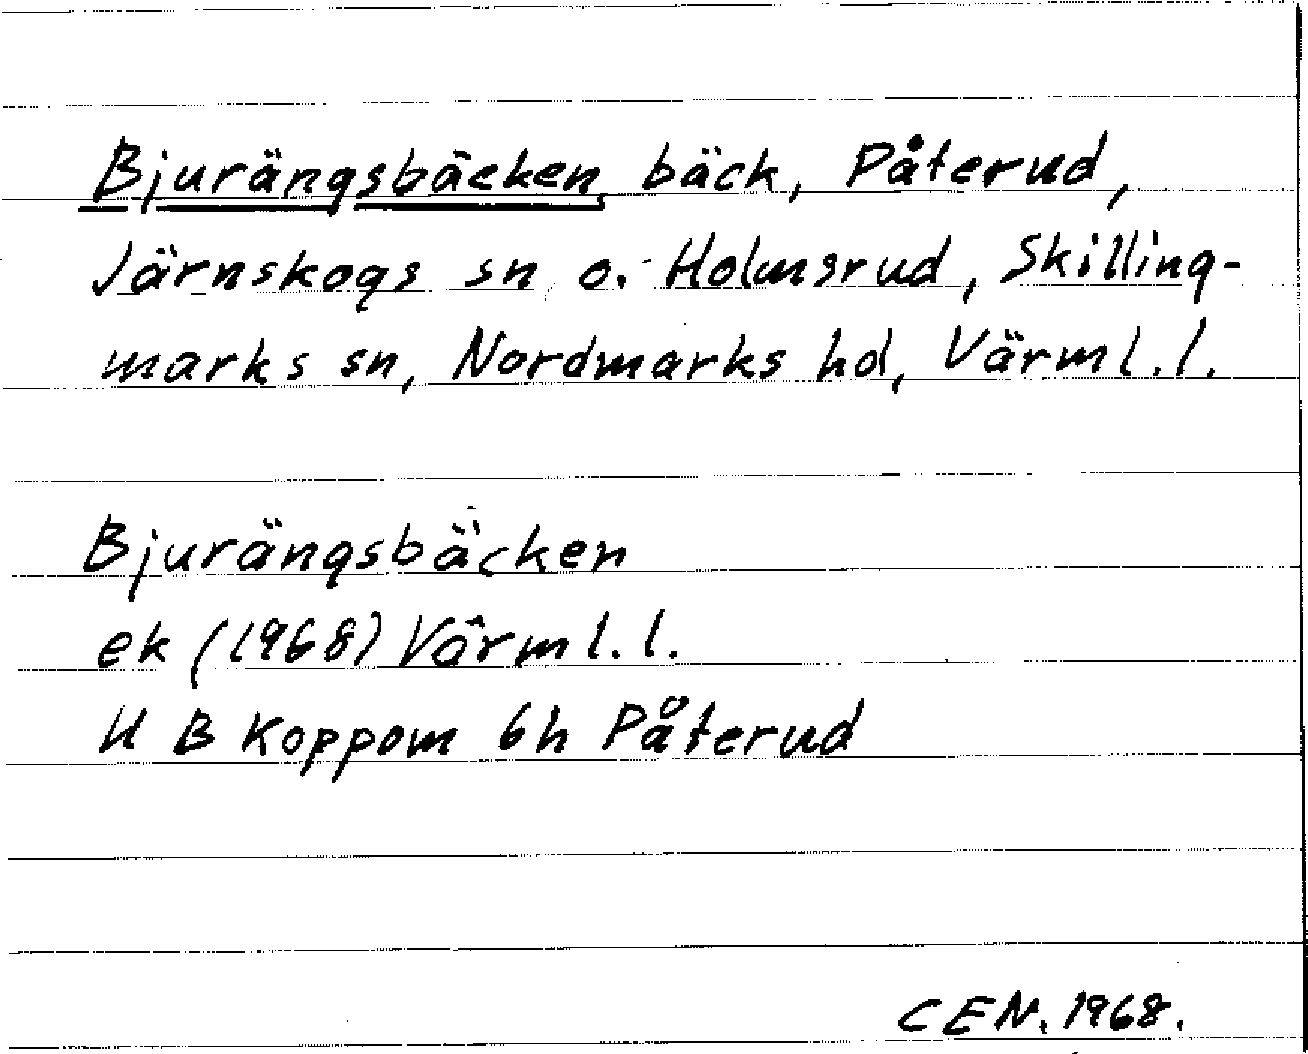 Bjurängsbäcken, bäck, Påterud,
Järnskogs sn o. Holmsrud, Skilling-
marks sn, Nordmarks hd, Värml.l.
Bjurängsbäcken
ek (1968) Värml.l.
11 B Koppom 6h Påterud
CEN. 1968.